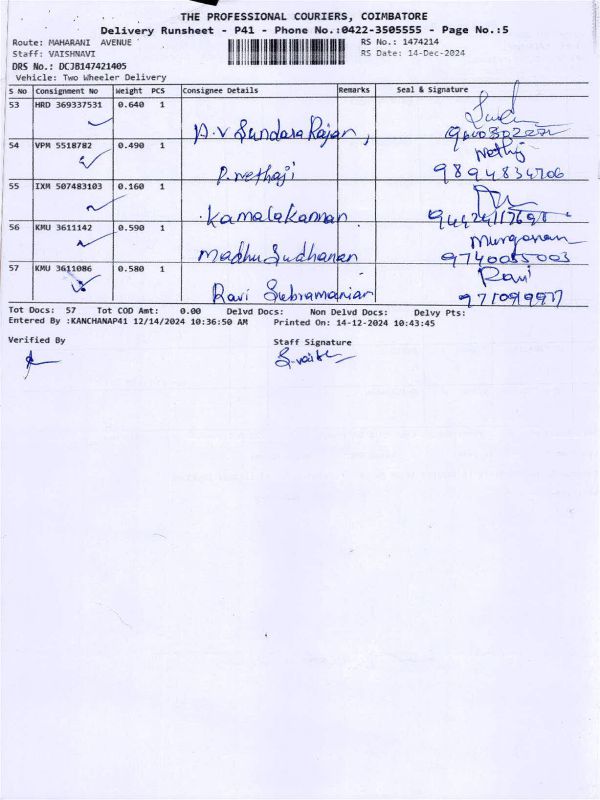 THE PROFESSIONAL COURIERS, COIMBATORE
Delivery Runsheet - P41 - Phone No.:0422-3505555 - Page No.:5
Route: MAHARANI AVENUE RS No.: 1474214
Staff: VAISHNAVI RS Date: 14-Dec-2024
DRS No.: DCJB147421405
Vehicle: Two Wheeler Delivery
S No Consignment No Weight PCS Consignee Details Remarks Seal & Signature
53 HRD 369337531 0.640 1
A.V Sundara Rajan,
54 VPM 5518782 0.490 1 Nethji
P. Nethaji 9894834706
55 IXM 507483103 0.160 1
Kamalakannan
56 KMU 3611142 0.590 1 Murganan
Madhu Sudhanan 9740055003
57 KMU 3611086 0.580 1 Ravi
Ravi Subramanian
Tot Docs: 57 Tot COD Amt: 0.00 Delvd Docs: Non Delvd Docs: Delvy Pts:
Entered By :KANCHANAP41 12/14/2024 10:36:50 AM Printed On: 14-12-2024 10:43:45
Verified By Staff Signature